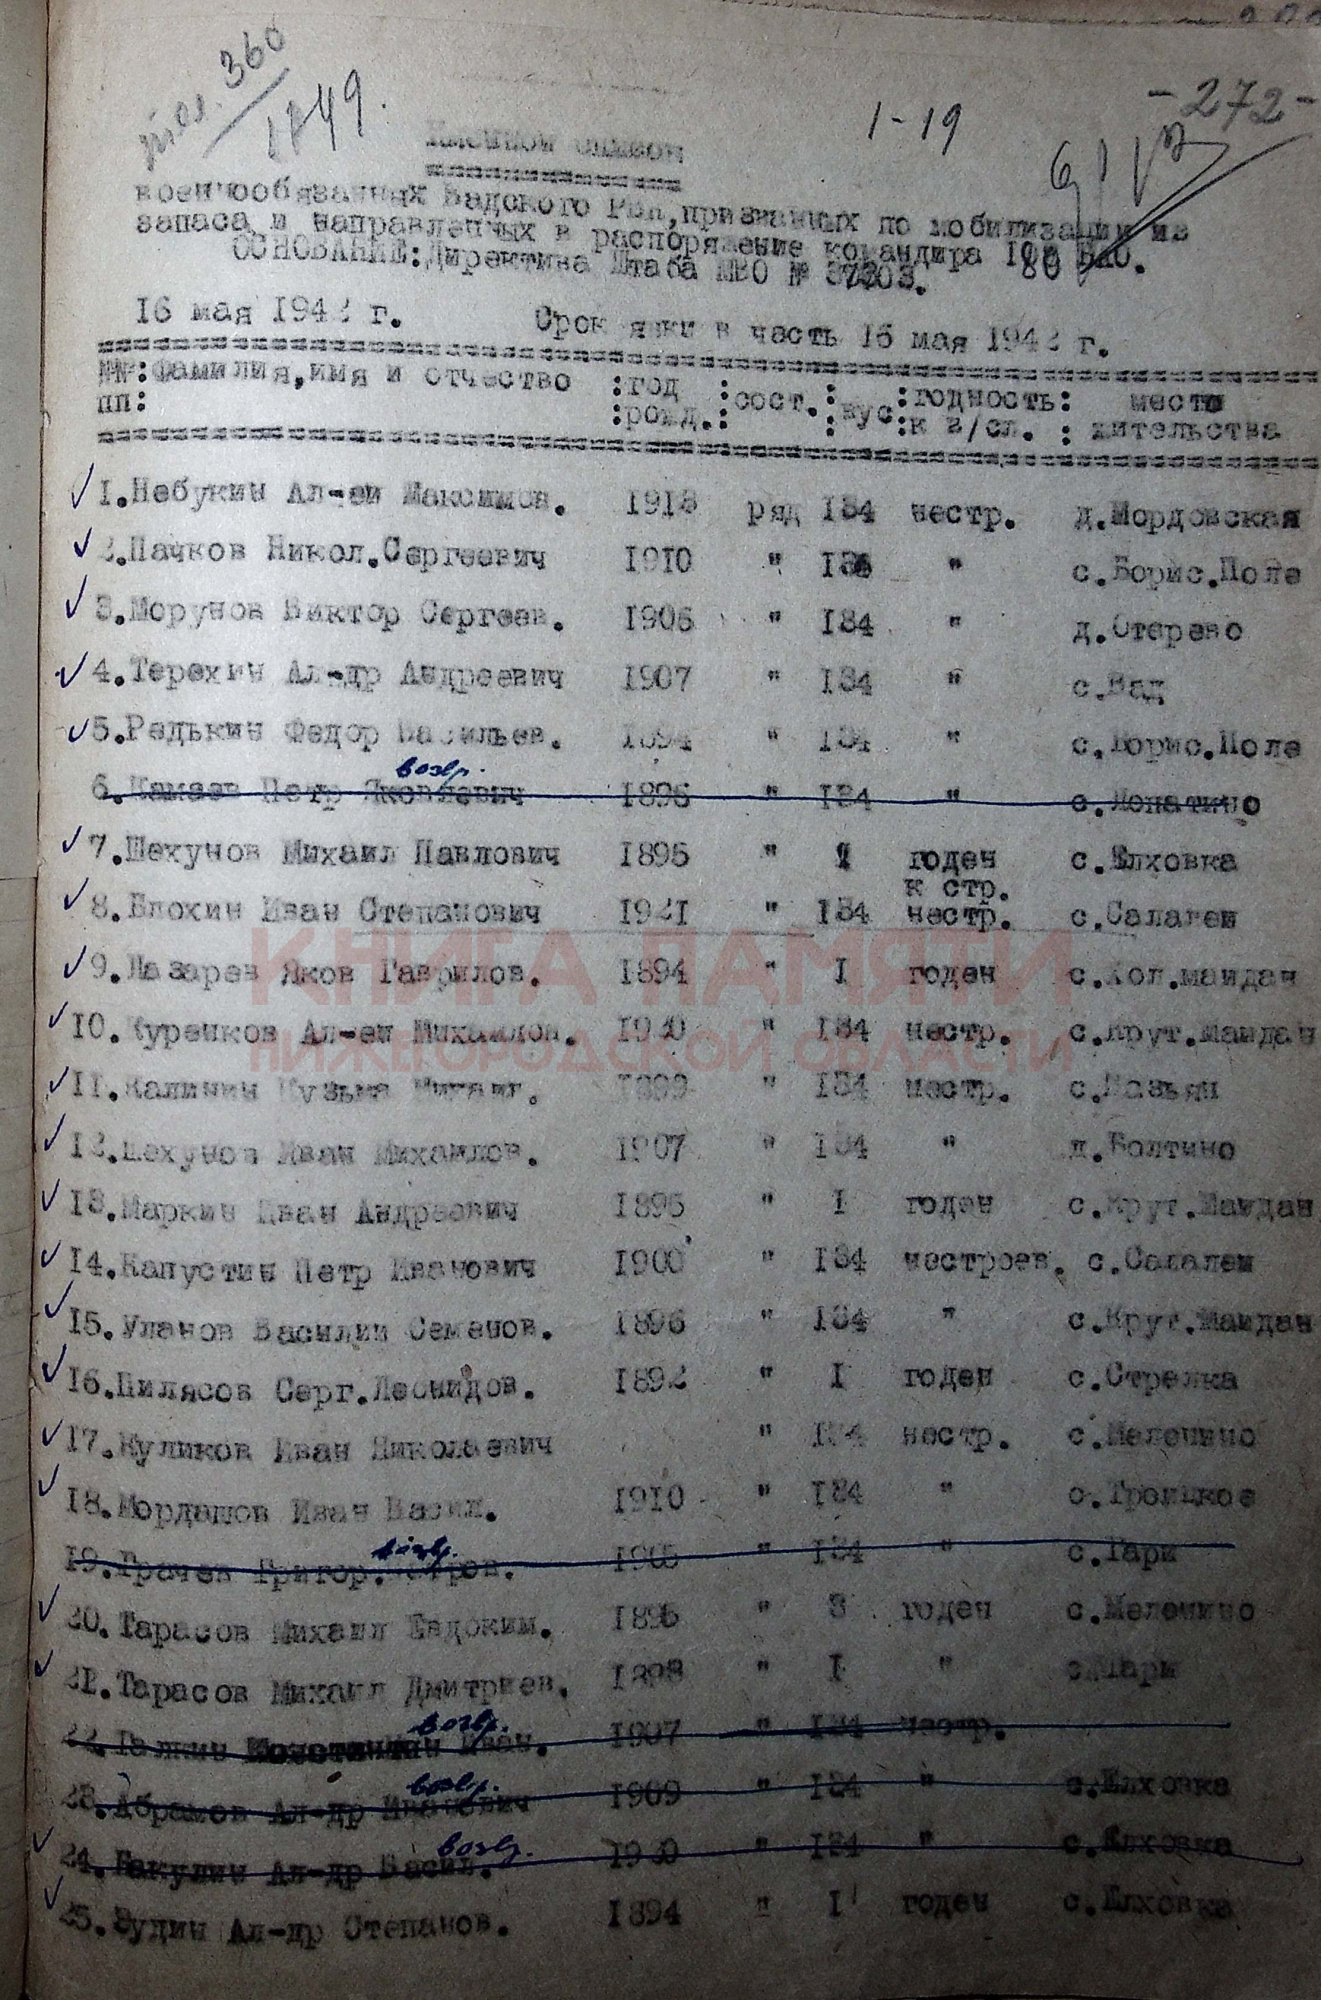 360
1849.
1-19
-272-
Именной список
военнообязанных Вадского Рвк, призванных по мобилизации из
запаса и направленных в распоряжение командира
ОСНОВАНИЕ: Директива Штаба МВО №
16 мая 1942 г. Срок явки в часть 16 мая 1942 г.
№№:Фамилия,имя и отчество :год :сост.: вус:годность: место
пп: :рожд.: : :к в/сл. : жительства
1.Небукин Ал-ей Максимов. 1918 ряд 134 нестр. д.Мордовская
2.Пачков Никол.Сергеевич 1910 " " с.Борис.Поле
3.Морунов Виктор Сергеев. 1906 " 134 " д.Отерево
4.Терехин Ал-др Андреевич 1907 " 134 " с.Вад
5.Редькин Федор Васильев. 1894 " 134 " с.Борис.Поле
возвр.
6.Камаев Петр Яковлевич 1896 " 134 " с.Лопатино
7.Шехунов Михаил Павлович 1895 " 1 годен с.Елховка
к стр.
8.Блохин Иван Степанович 1921 " 134 нестр. с.Салалей
9.Лазарев Яков Гаврилов. 1894 " 1 годен с.Кол.майдан
10.Куренков Ал-ей Михайлов. 134 нестр. с.Крут.Майдан
11.Калинин Кузьма Михаил. " 134 нестр.
12.Шехунов Иван Михайлов. 1907 " 134 " д.Болтино
13.Маркин Иван Андреевич 1895 " 1 годен с.Крут.Майдан
14.Капустин Петр Иванович 1900 " 134 нестроев. с.Салалей
15.Уланов Василий Семенов. 1896 " 134 " с.Крут.Майдан
16.Пилясов Серг.Леонидов. 1892 " 1 годен с.Стрелка
17.Куликов Иван Николаевич " 134 нестр. с.Меленино
18.Мордашов Иван Васил. 1910 " 134 " с.Троицкое
возвр.
19.Грачев Григор. 1905 " 134 "
20.Тарасов Михаил Евдоким. 1895 " 3 годен с.Меленино
21.Тарасов Михаил Дмитриев. 1898 " 1 "
возвр.
22.Галкин Константин Иван. 1907 " 134 нестр.
возвр.
23.Абрамов Ал-др Иванович 1909 " 134 " с.Елховка
возвр.
24.Бакулин Ал-др Васил. " 134 " с.Елховка
25.Зудин Ал-др Степанов. 1894 " 1 годен с.Елховка
КНИГА ПАМЯТИ
НИЖЕГОРОДСКОЙ ОБЛАСТИ